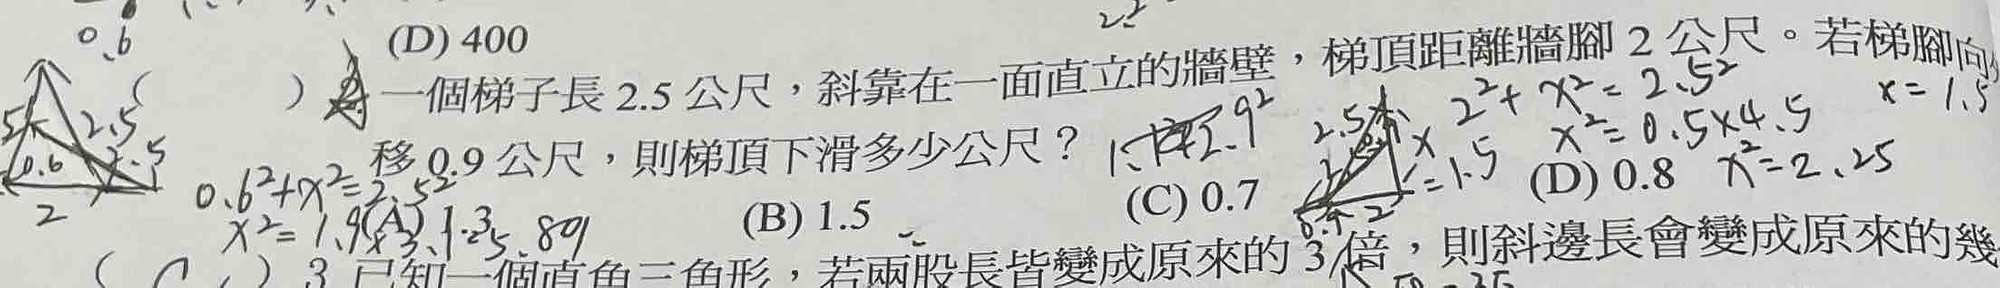 0.6
(D) 400
( ) 一個梯子長 2.5 公尺，斜靠在一面直立的牆壁，梯頂距離牆腳 2 公尺。若梯腳向
移 0.9 公尺，則梯頂下滑多少公尺？
2² + x² = 2.5²
x = 1.5
x² = 0.5×4.5
x² = 2.25
2.5
0.6
2
2.5
x
=1.5
2
0.6²+x²=2.5²
x²=1.9×3.1
(A) 1.3
(B) 1.5
(C) 0.7
(D) 0.8
( ) 3 已知一個直角三角形，若兩股長皆變成原來的 3 倍，則斜邊長會變成原來的幾